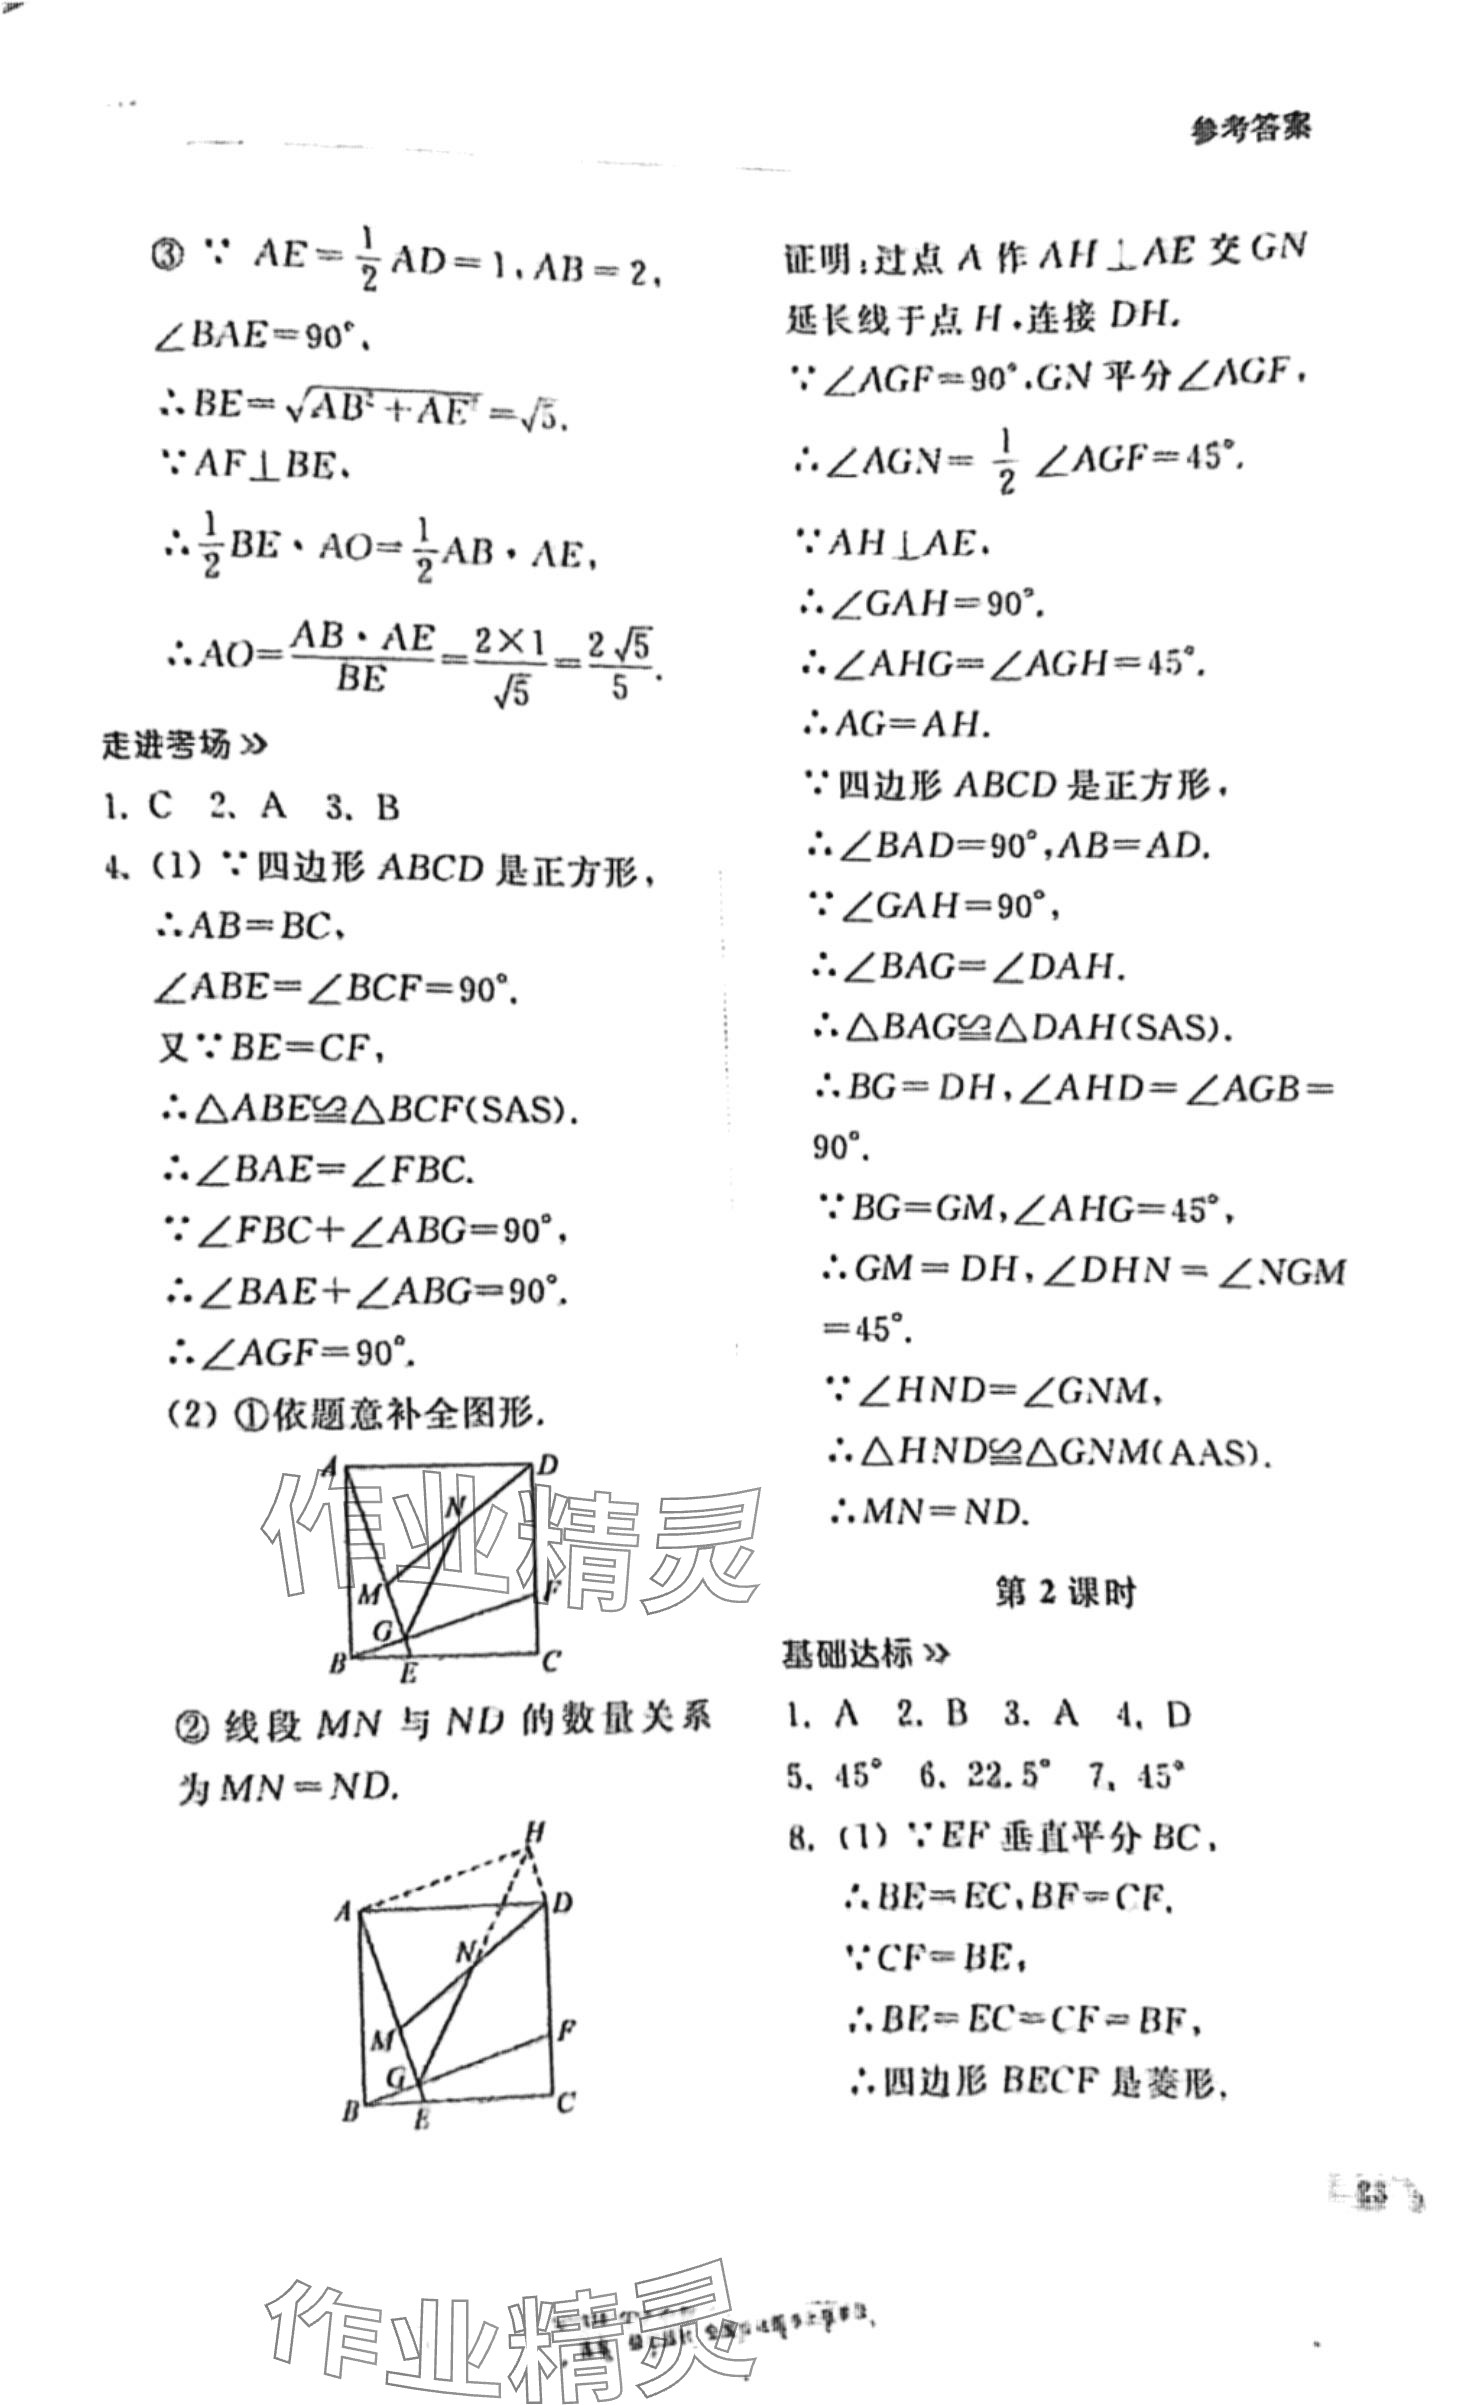 参考答案
③ ∵ AE=1/2AD=1,AB=2,
∠BAE=90°,
∴BE=√(AB²+AE²)=√5.
∵AF⊥BE,
∴1/2BE·AO=1/2AB·AE,
∴AO=AB·AE/BE=2×1/√5=2√5/5.
走进考场»
1. C 2. A 3. B
4. (1) ∵四边形 ABCD 是正方形,
∴AB=BC,
∠ABE=∠BCF=90°.
又∵BE=CF,
∴△ABE≌△BCF(SAS).
∴∠BAE=∠FBC.
∵∠FBC+∠ABG=90°,
∴∠BAE+∠ABG=90°.
∴∠AGF=90°.
(2) ①依题意补全图形.
A D
N
M F
G
B E C
② 线段 MN 与 ND 的数量关系
为MN=ND.
H
A D
N
M F
G
B E C
证明:过点 A 作 AH⊥AE 交 GN
延长线于点 H,连接 DH.
∵∠AGF=90°,GN 平分∠AGF,
∴∠AGN=1/2∠AGF=45°.
∵AH⊥AE,
∴∠GAH=90°.
∴∠AHG=∠AGH=45°.
∴AG=AH.
∵四边形 ABCD 是正方形,
∴∠BAD=90°,AB=AD.
∵∠GAH=90°,
∴∠BAG=∠DAH.
∴△BAG≌△DAH(SAS).
∴BG=DH,∠AHD=∠AGB=
90°.
∵BG=GM,∠AHG=45°,
∴GM=DH,∠DHN=∠NGM
=45°.
∵∠HND=∠GNM,
∴△HND≌△GNM(AAS).
∴MN=ND.
第 2 课时
基础达标»
1. A 2. B 3. A 4. D
5. 45° 6. 22.5° 7. 45°
8. (1) ∵EF 垂直平分 BC,
∴BE=EC,BF=CF.
∵CF=BE,
∴BE=EC=CF=BF,
∴四边形 BECF 是菱形.
23
作业精灵
作业精灵